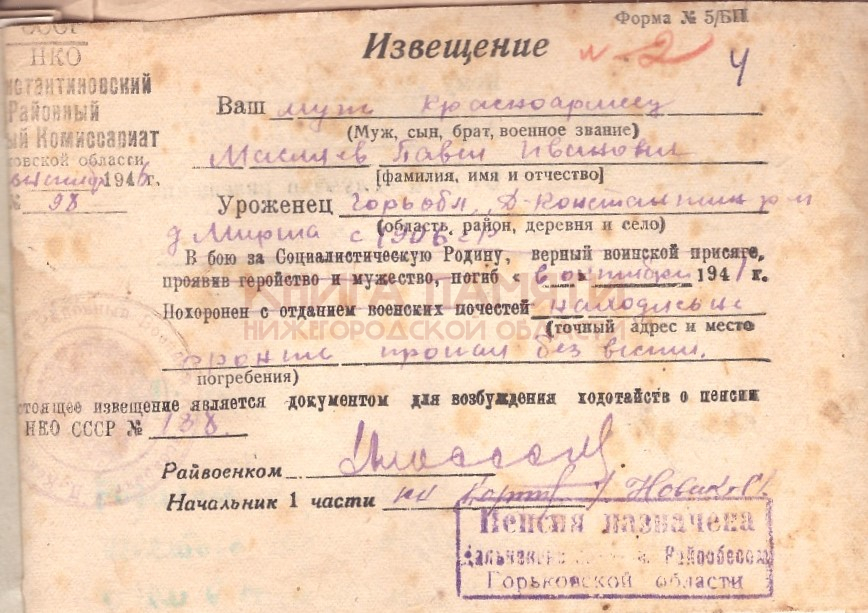 Форма № 5/БП
СССР
НКО
нстантиновский
Районный
ый Комиссариат
ковской области
194 г.
№ 98
Извещение
№ 2
4
Ваш муж красноармеец
(Муж, сын, брат, военное звание)
Павел Иванович
[фамилия, имя и отчество]
Уроженец Горьобл, Д-Константин р-н
(область, район, деревня и село)
д. с 1906 г.
В бою за Социалистическую Родину, верный воинской присяге,
проявив геройство и мужество, погиб « в октябре 1941 г.
Похоронен с отданием военских почестей находясь на
(точный адрес и место
фронте пропал без вести.
погребения)
стоящее извещение является документом для возбуждения ходотайств о пенсии
НКО СССР № 138
Райвоенком
Начальник 1 части
Пенсия назначена
Райсобесом
Горьковской области
КНИГА ПАМЯТИ
НИЖЕГОРОДСКОЙ ОБЛАСТИ